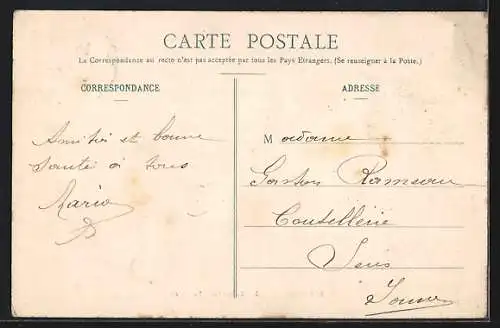 CARTE POSTALE
La Correspondance au recto n'est pas acceptée par tous les Pays Etrangers. (Se renseigner à la Poste.)
CORRESPONDANCE
Amitiés et bonne
santé à tous
Maria
ADRESSE
Madame
Gaston Rameau
Coutellerie
Sens
Yonne